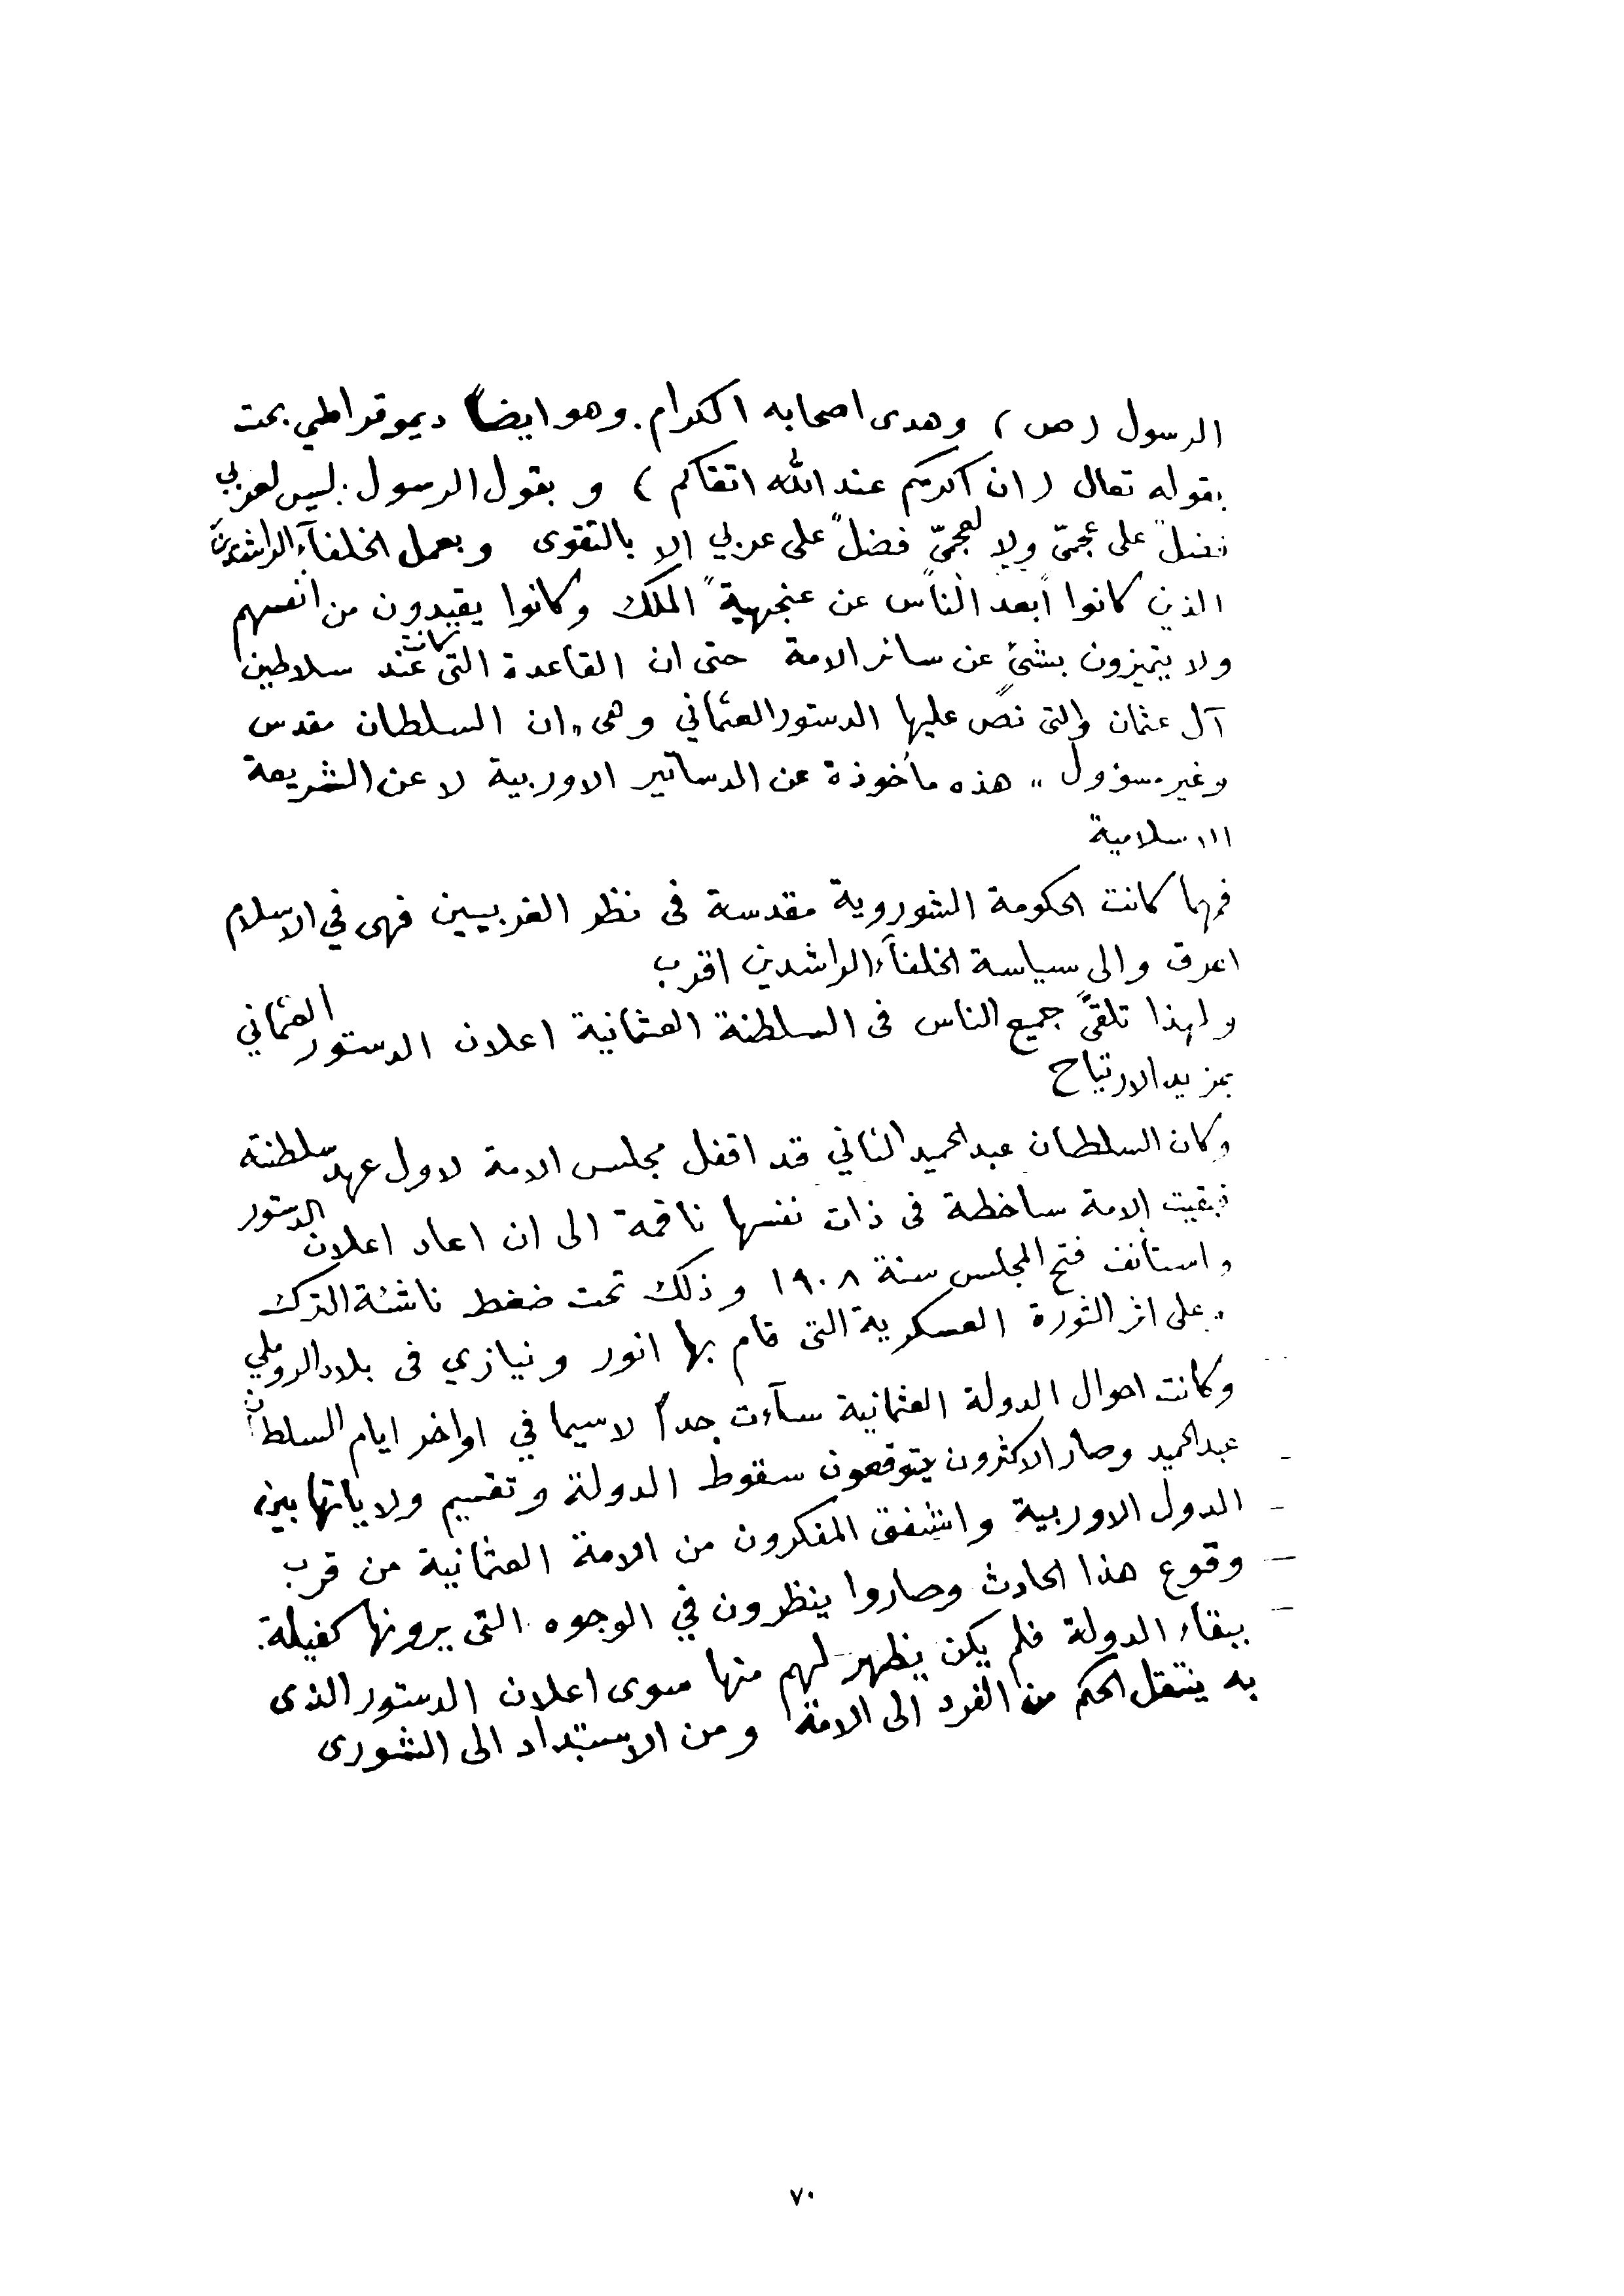 الرسول (ص) وهدى اصحابه الكرام. وهو ايضاً ديموقراطي بحت
بقوله تعالى (ان اكرمكم عند الله اتقاكم) و بقول الرسول: ليس لعربي
فضلٌ على عجميّ ولا لعجميّ فضلٌ على عربي الا بالتقوى وبعمل الخلفآء الراشدين
الذين كانوا أبعد الناس عن عنجهية الملك وكانوا يقيدون من انفسهم
ولا يتميزون بشئ عن سائر الامة حتى ان القاعدة التى كانت عند سلاطين
آل عثمان والتى نصّ عليها الدستور العثماني وهى „ ان السلطان مقدس
وغير مسؤول „ هذه مأخوذة عن الدساتير الاوربية لا عن الشريعة
الاسلامية
فمهما كانت الحكومة الشوروية مقدسة فى نظر الغربيين فهى في الاسلام
اعرق والى سياسة الخلفآء الراشدين اقرب
ولهذا تلقىّ جميع الناس فى السلطنة العثمانية اعلان الدستور العثماني
بمزيد الارتياح
وكان السلطان عبد الحميد الثاني قد اقفل مجلس الامة لاول عهد سلطنته
فبقيت الامة ساخطة فى ذات نفسها ناقمة الى ان اعاد اعلان الدستور
واستأنف فتح المجلس سنة ١٩٠٨ وذلك تحت ضغط ناشئة الترك
وعلى اثر الثورة العسكرية التى قام بها انور ونيازي فى بلاد الروملي
وكانت احوال الدولة العثمانية سآءت جداً لاسيما في اواخر ايام السلطان
عبد الحميد وصار الاكثرون يتوقعون سقوط الدولة وتقسيم ولاياتها بين
الدول الاوربية واشفق المفكرون من الامة العثمانية من قرب
وقوع هذا الحادث وصاروا ينظرون في الوجوه التى يرونها كفيلة
ببقاء الدولة فلم يكن يظهر لهم منها سوى اعلان الدستور الذى
به ينتقل الحكم من الفرد الى الامة ومن الاستبداد الى الشورى
٧٠